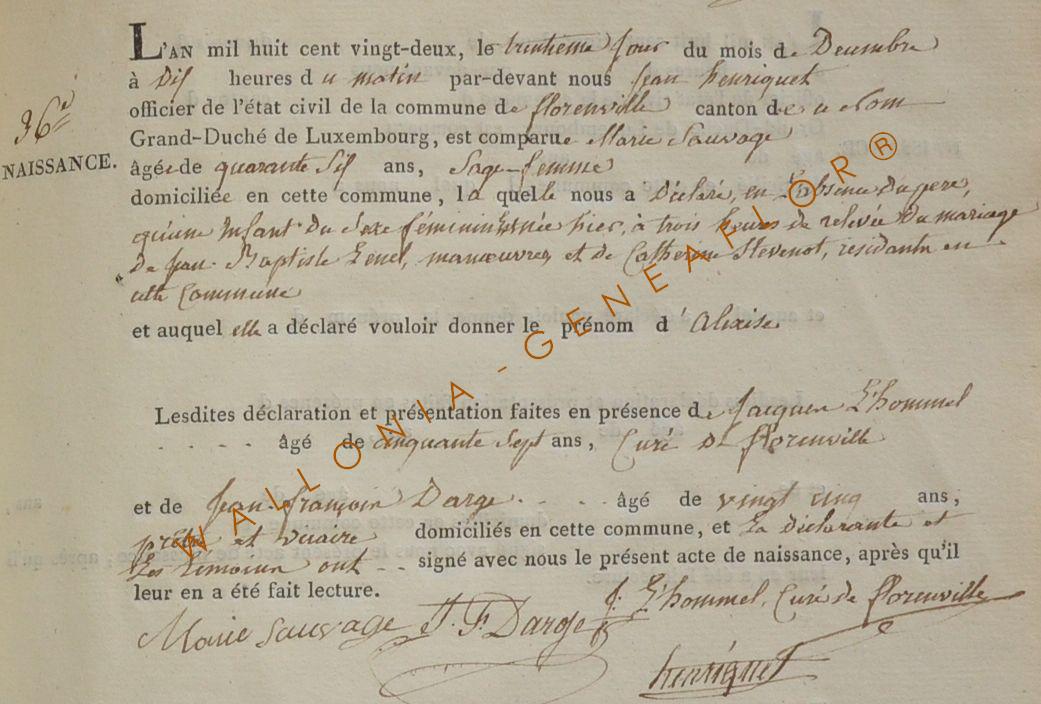 L'AN mil huit cent vingt-deux, le trentieme jour du mois de Decembre
à Dix heures du matin par-devant nous Jean henriquet
officier de l'état civil de la commune de florenville canton de ce nom
36e
Grand-Duché de Luxembourg, est comparue Marie Sauvage
NAISSANCE.
âgée de quarante Six ans, Sage-femme
domiciliée en cette commune, la quelle nous a Déclaré, en L'absence Du pere,
qu'une Enfant Du Sexe féminin est née hier, à trois heures de relevée Du mariage
De Jean-Baptiste Genel, manœuvre, et de Catherine Stevenot, residante en
cette Commune
et auquel elle a déclaré vouloir donner le prénom d'Alexise
Lesdites déclaration et présentation faites en présence de Jacques L'hommel
âgé de cinquante Sept ans, Curé De florenville
et de Jean-françois Darge âgé de vingt cinq ans,
prêtre et vicaire domiciliés en cette commune, et La Déclarante et
Les temoins ont signé avec nous le présent acte de naissance, après qu'il
leur en a été fait lecture.
Marie Sauvage J. F. Darge J. L'hommel, Curé de florenville
henriquet
WALLONIA-GENEAFLOR®